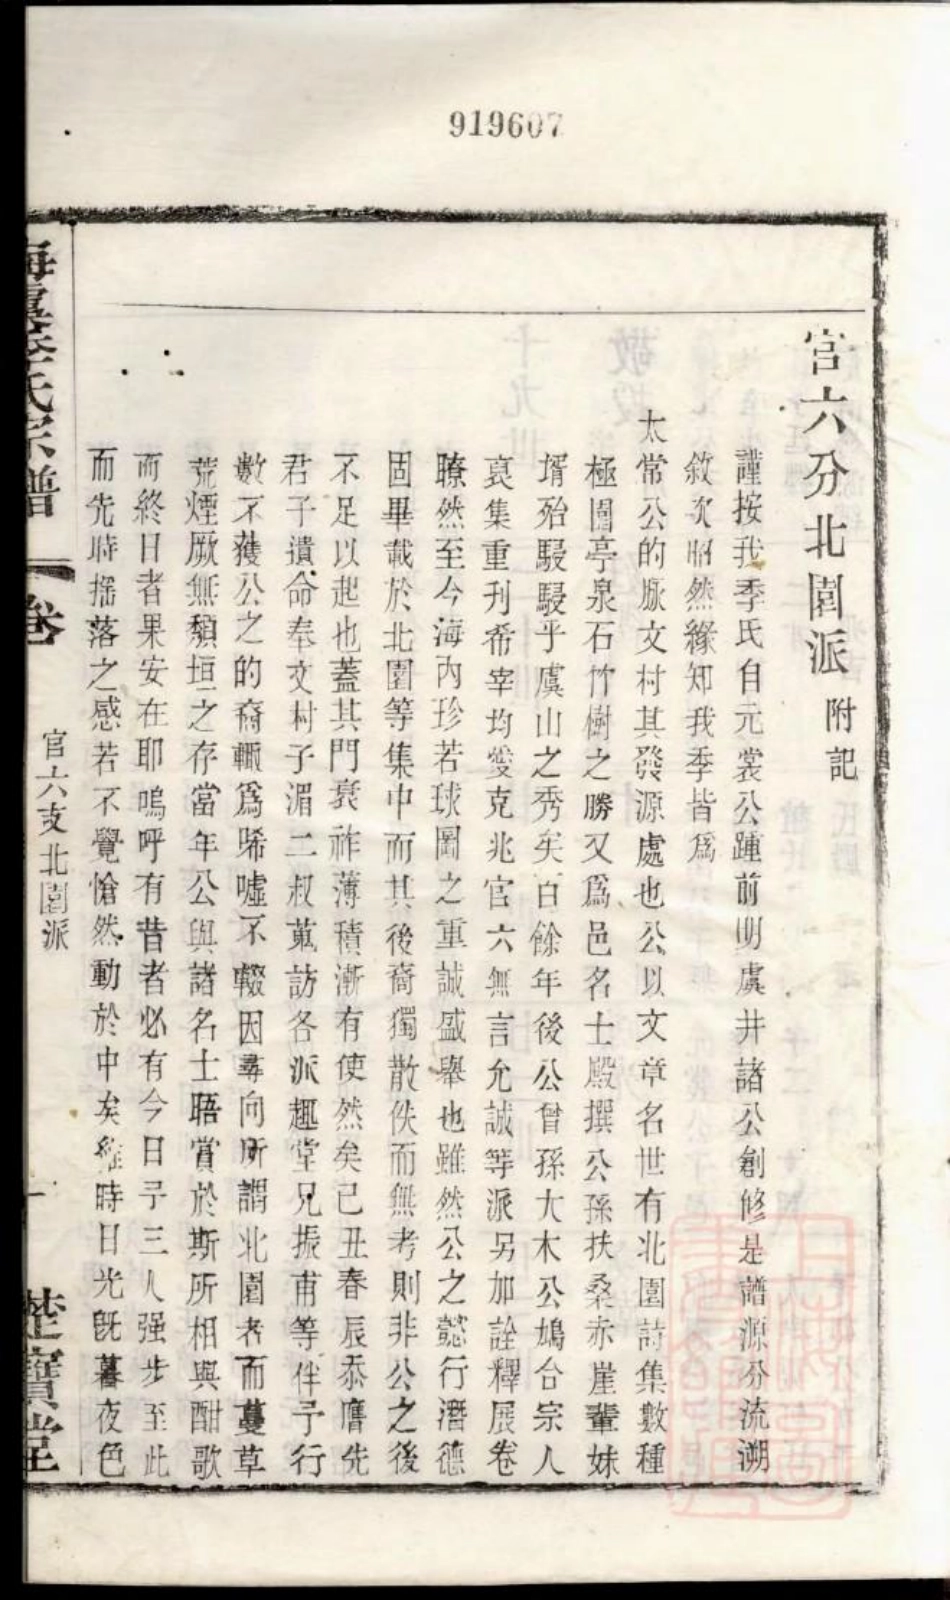 919607
官六分北園派 附記
謹按我季氏自元裳公踵前明虞井諸公創修是譜源分流溯
敘次昭然緣知我季皆爲
太常公的脈文村其發源處也公以文章名世有北園詩集數種
極園亭泉石竹樹之勝又爲邑名士殿撰公孫扶桑赤崖輩妹
壻殆駸駸乎虞山之秀矣百餘年後公曾孫大木公鳩合宗人
裒集重刊希宰均燮克兆官六無言允誠等派另加詮釋展卷
瞭然至今海內珍若球圖之重誠盛舉也雖然公之懿行潛德
固畢載於北園等集中而其後裔獨散佚而無考則非公之後
不足以起也蓋其門衰祚薄積漸有使然矣己丑春辰忝膺先
君子遺命奉文村子湄二叔蒐訪各派趣堂兄振甫等伴予行
數不獲公之的裔輒爲唏噓不輟因尋向所謂北園者而蔓草
荒煙厥無頹垣之存當年公與諸名士晤賞於斯所相與酣歌
而終日者果安在耶嗚呼有昔者必有今日予三人强步至此
而先時搖落之感若不覺愴然動於中矣維時日光旣暮夜色
季氏宗譜 卷 官六支北園派 一 楚寶堂